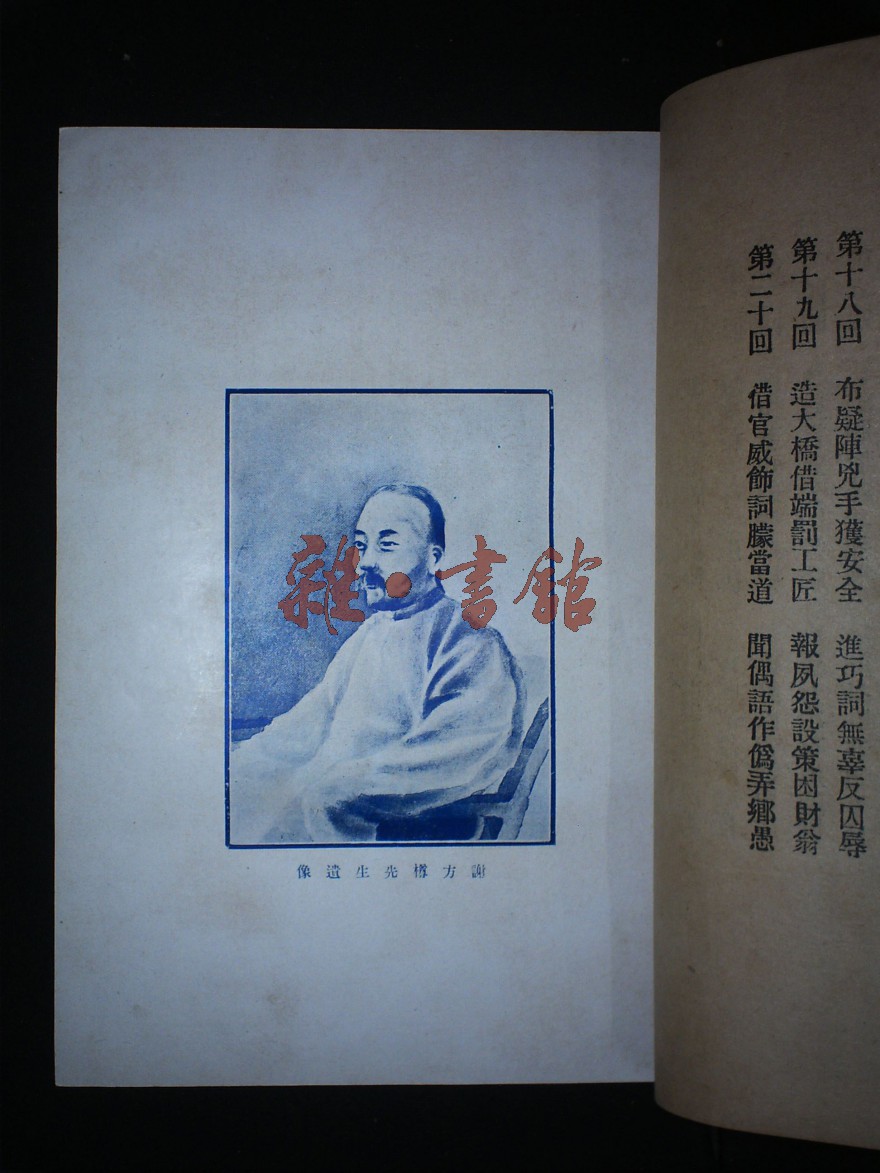 第十八回 布疑陣兇手獲安全 進巧詞無辜反囚辱
第十九回 造大橋借端罰工匠 報夙怨設策困財翁
第二十回 借官威飾詞朦當道 聞偶語作僞弄鄉愚
謝方樽先生遺像
雜·書館